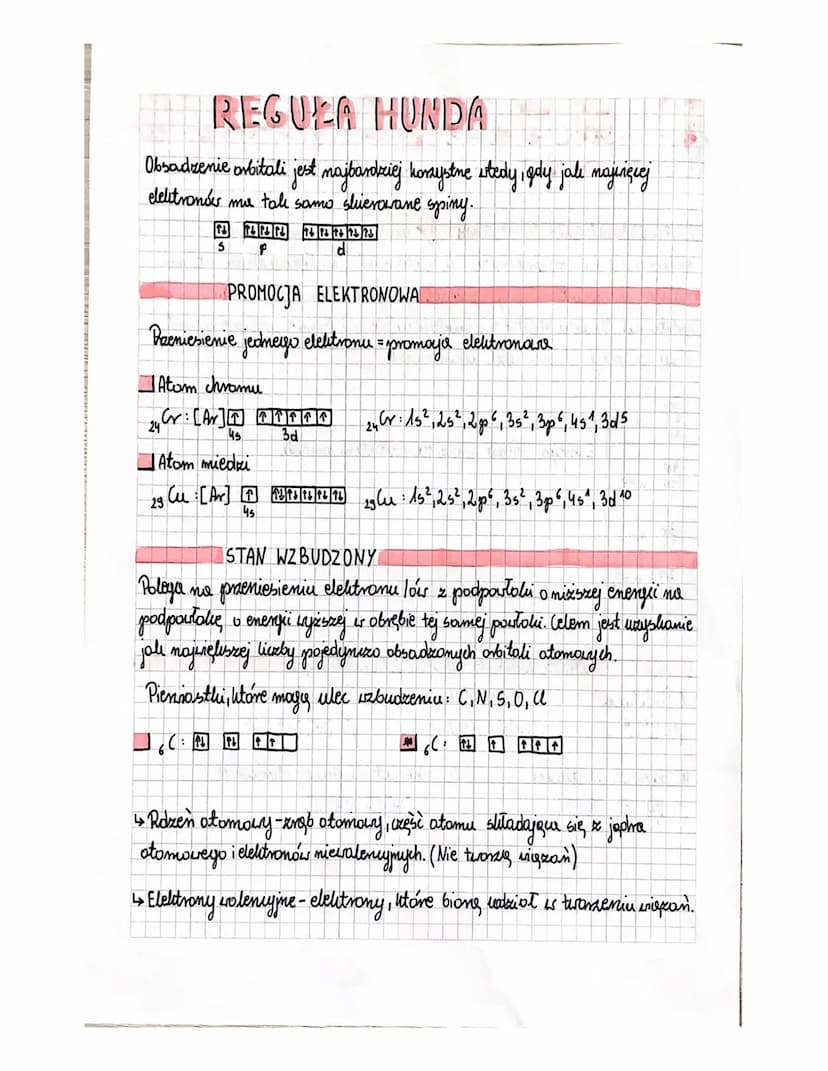 REGUŁA HUNDA
Obsadzenie orbitali jest najbardziej korzystne wtedy, gdy jak najwięcej
elektronów ma tak samo skierowane spiny.
↑↓ ↑↓ ↑↓ ↑↓ ↑↓ ↑↓ ↑↓ ↑↓ ↑↓
s p d
PROMOCJA ELEKTRONOWA
Przeniesienie jednego elektronu = promocja elektronowa
Atom chromu
₂₄Cr: [Ar] ↑ ↑ ↑ ↑ ↑ ↑ ₂₄Cr: 1s², 2s², 2p⁶, 3s², 3p⁶, 4s¹, 3d⁵
4s 3d
Atom miedzi
₂₉Cu: [Ar] ↑ ↑↓ ↑↓ ↑↓ ↑↓ ↑↓ ₂₉Cu: 1s², 2s², 2p⁶, 3s², 3p⁶, 4s¹, 3d¹⁰
4s
STAN WZBUDZONY
Polega na przeniesieniu elektronu/ów z podpowłoki o niższej energii na
podpowłokę o energii wyższej w obrębie tej samej powłoki. Celem jest uzyskanie
jak największej liczby pojedynczo obsadzonych orbitali atomowych.
Pierwiastki, które mogą ulec wzbudzeniu: C, N, S, O, Cl
₆C: ↑↓ ↑↓ ↑ ↑ ₆C: ↑↓ ↑ ↑ ↑ ↑
↳ Rdzeń atomowy - zrąb atomowy, część atomu składająca się z jądra
atomowego i elektronów niewalencyjnych. (Nie tworzą wiązań)
↳ Elektrony walencyjne - elektrony, które biorą udział w tworzeniu wiązań.